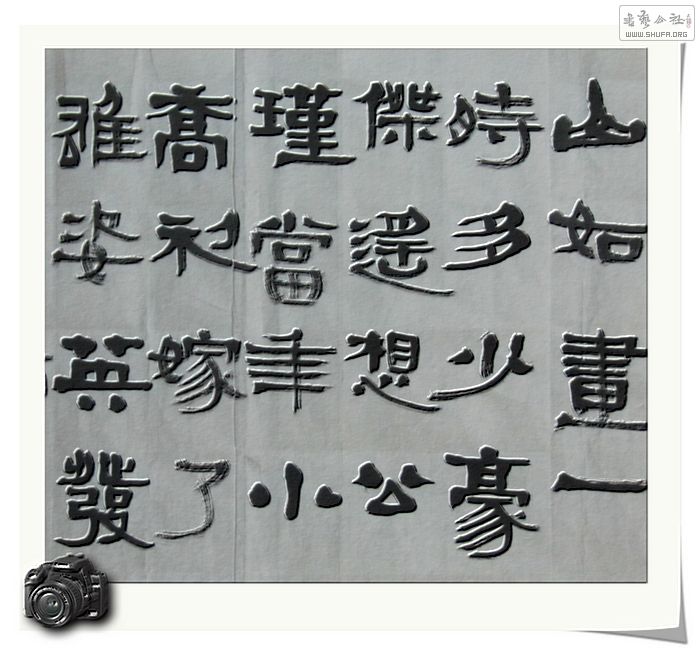 山如畫一
時多少豪
傑遙想公
瑾當年小
喬初嫁了
雄姿英發
書藝公社
WWW.SHUFA.ORG